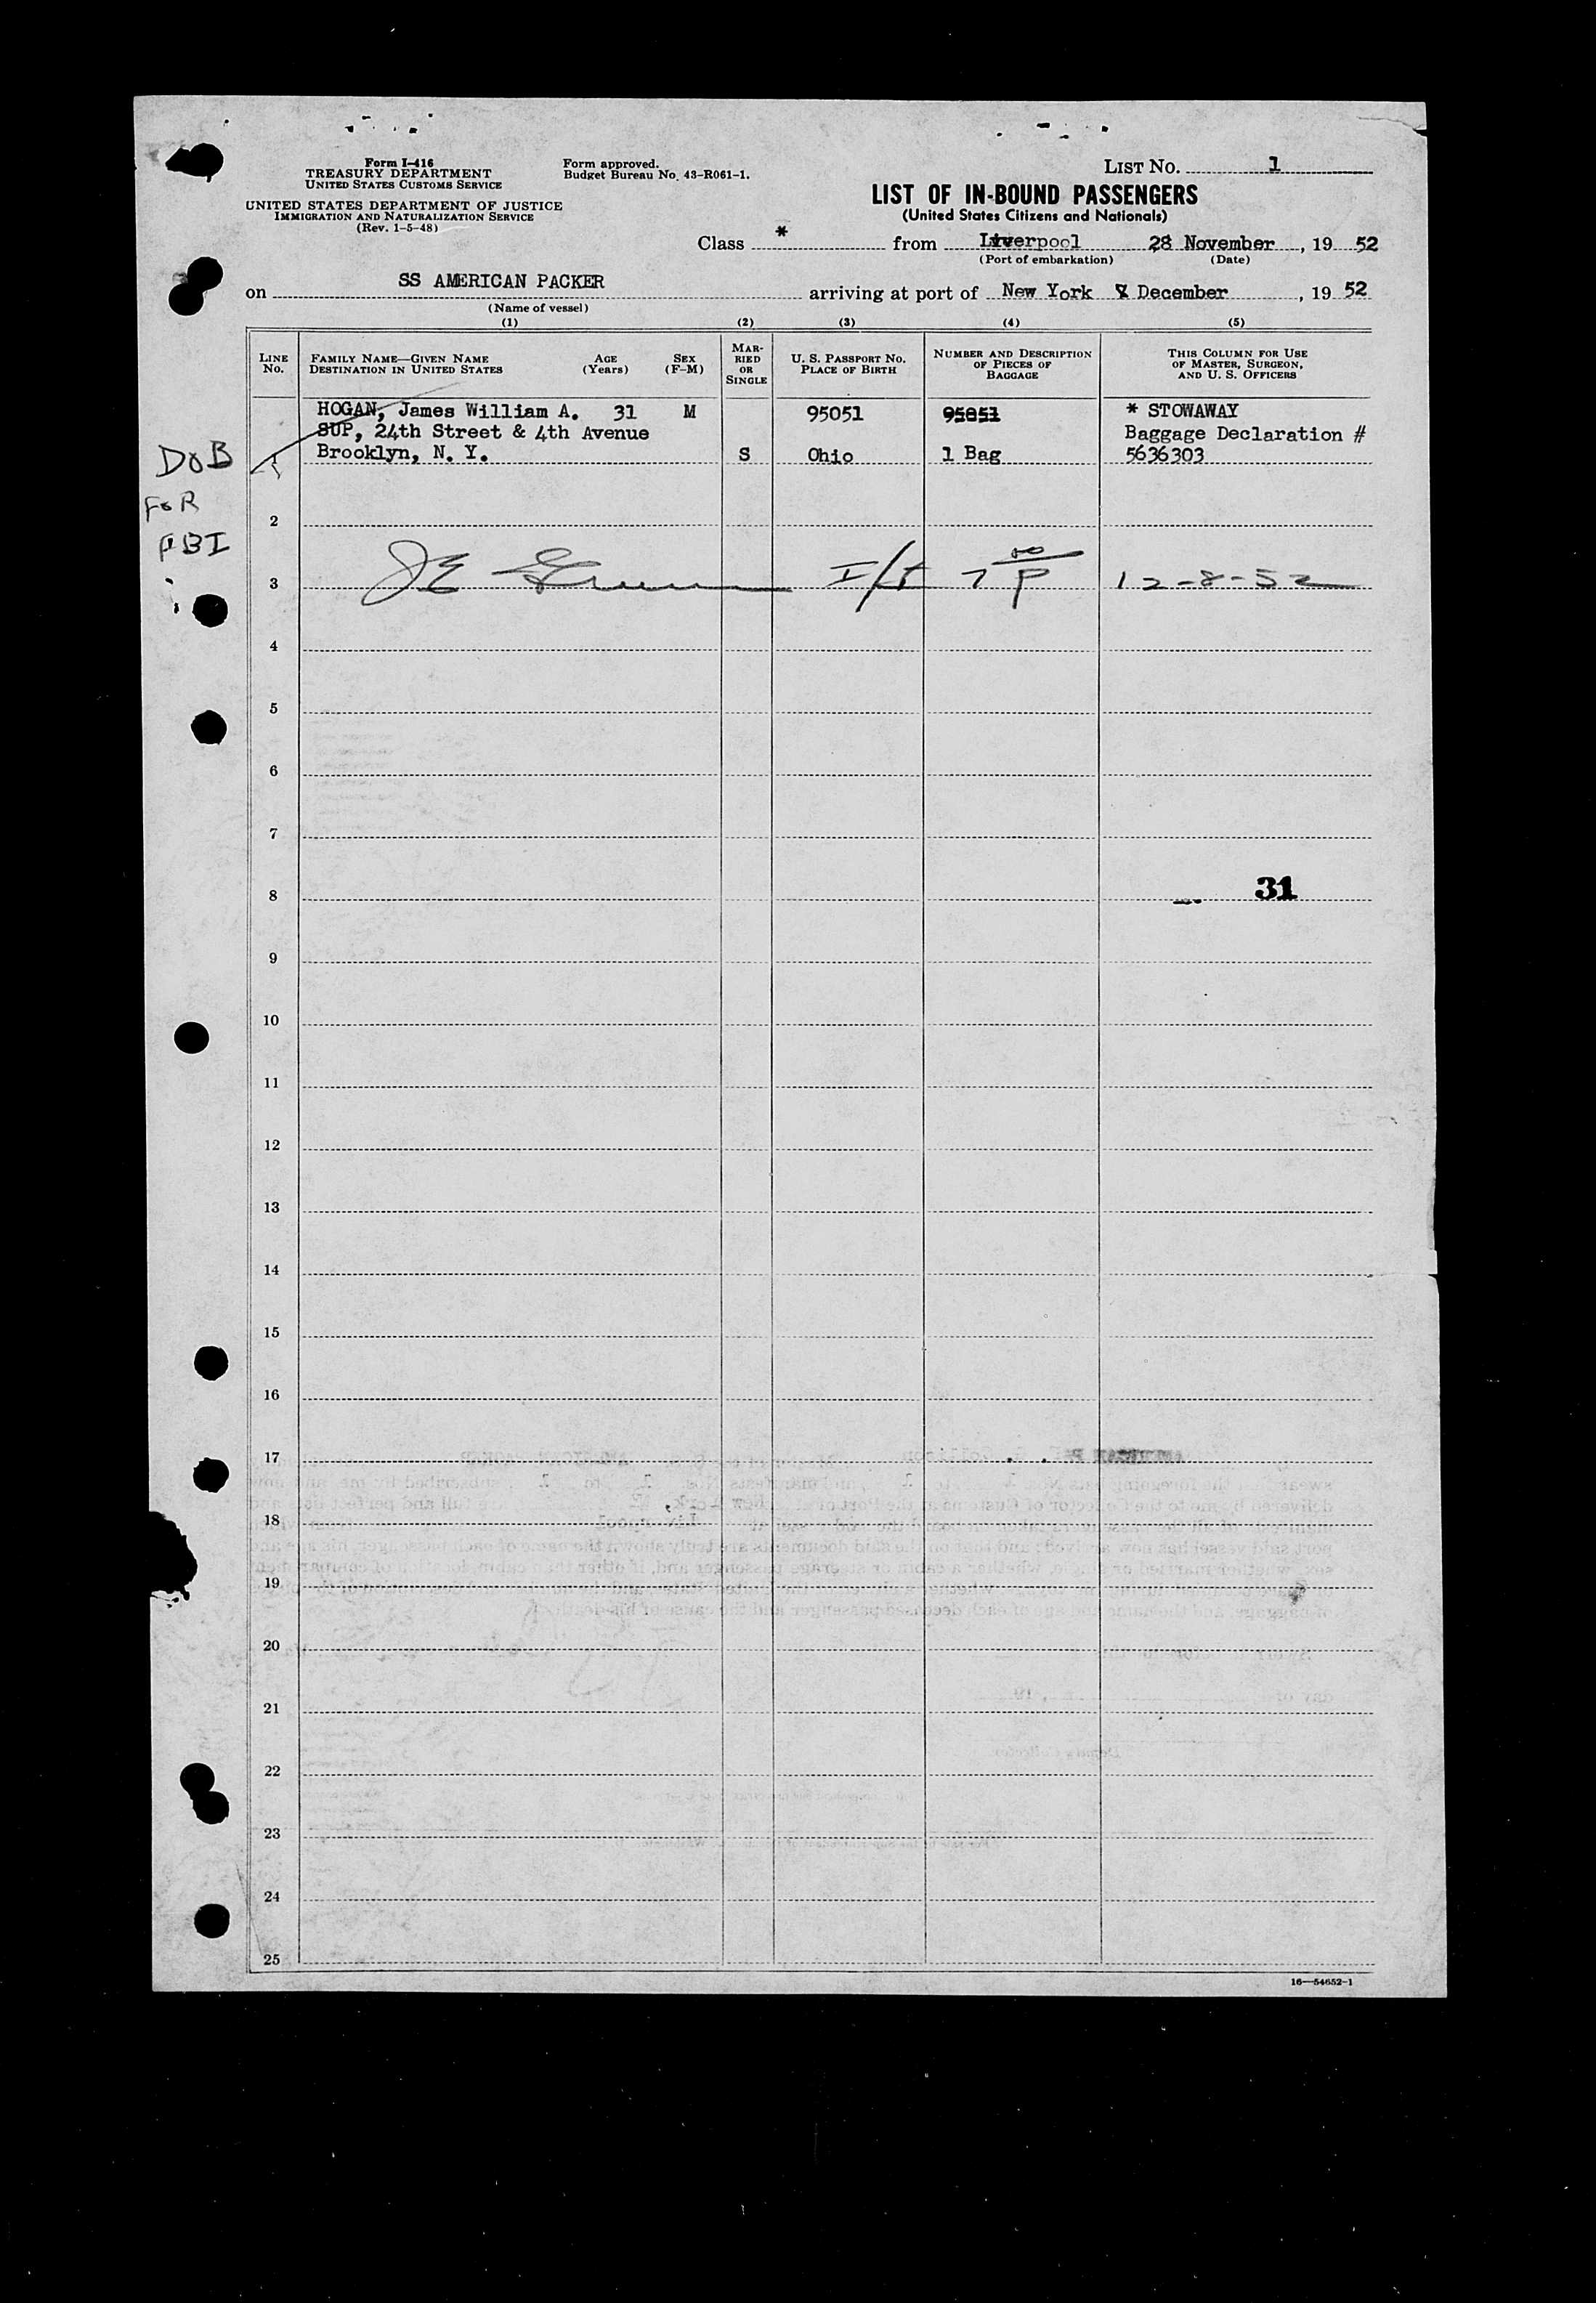 Form I-416
TREASURY DEPARTMENT
UNITED STATES CUSTOMS SERVICE
UNITED STATES DEPARTMENT OF JUSTICE
IMMIGRATION AND NATURALIZATION SERVICE
(Rev. 1-5-48)
Form approved.
Budget Bureau No. 43-R061-1.
LIST No. 1
LIST OF IN-BOUND PASSENGERS
(United States Citizens and Nationals)
Class * from Liverpool 28 November, 19 52
(Port of embarkation) (Date)
on SS AMERICAN PACKER arriving at port of New York 8 December, 19 52
(Name of vessel)
(1) (2) (3) (4) (5)
LINE No. FAMILY NAME—GIVEN NAME DESTINATION IN UNITED STATES AGE (Years) SEX (F-M) MARRIED OR SINGLE U. S. PASSPORT No. PLACE OF BIRTH NUMBER AND DESCRIPTION OF PIECES OF BAGGAGE THIS COLUMN FOR USE OF MASTER, SURGEON, AND U. S. OFFICERS
HOGAN, James William A. 31 M 95051 95051 * STOWAWAY
SUP, 24th Street & 4th Avenue Baggage Declaration #
1 Brooklyn, N. Y. S Ohio 1 Bag 5636303
DOB
FOR
FBI
2
3 12-8-52
4
5
6
7
8 31
9
10
11
12
13
14
15
16
17
18
19
20
21
22
23
24
25
16—54652-1